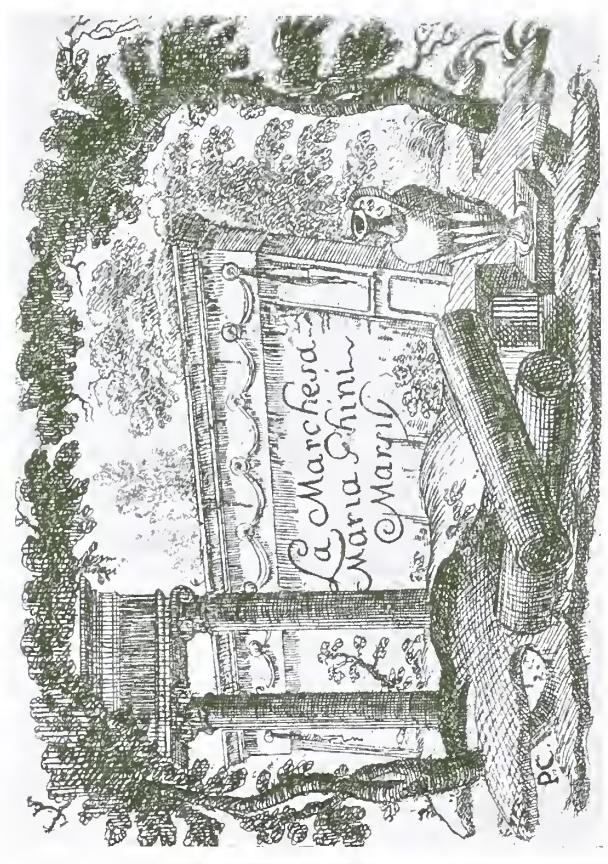 La Marchesa
Maria Ghini
Marsy
P.C.